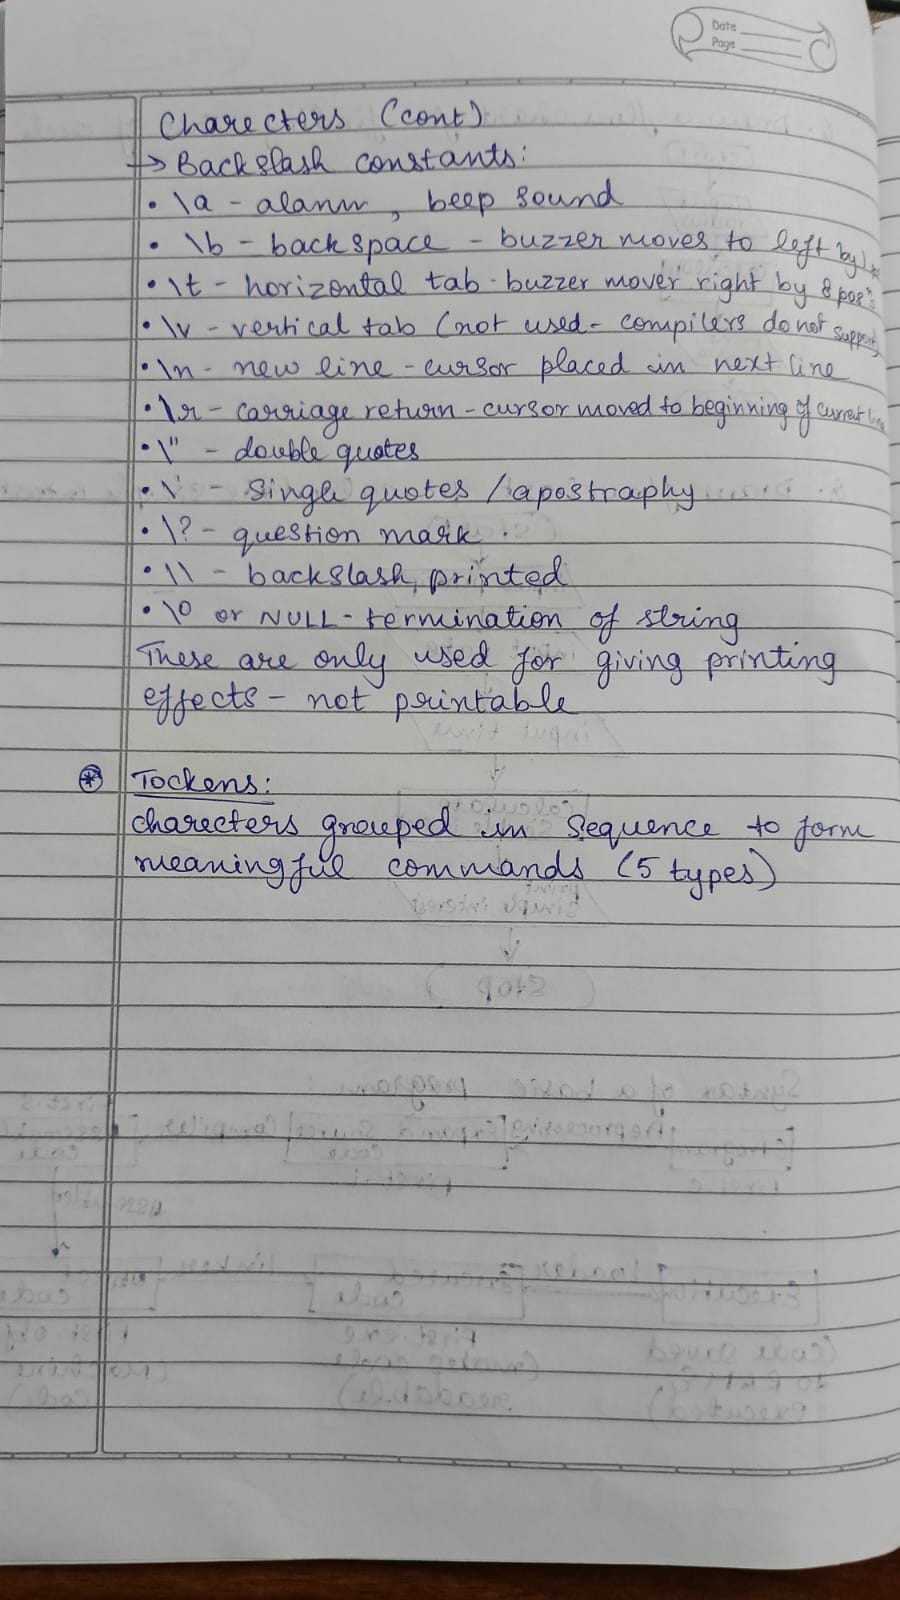 Date
Page
Charecters (cont)
→ Backslash constants:
• \a - alarm, beep sound
• \b - backspace - buzzer moves to left by 1
• \t - horizontal tab - buzzer mover right by 8 posns
• \v - vertical tab (not used - compilers do not support)
• \n - new line - cursor placed in next line
• \r - carriage return - cursor moved to beginning of current line
• \" - double quotes
• \' - Single quotes / apostraphy
• \? - question mark
• \\ - backslash, printed
• \0 or NULL - termination of string
These are only used for giving printing
effects - not printable
Tockens:
charecters grouped in sequence to form
meaningful commands (5 types)